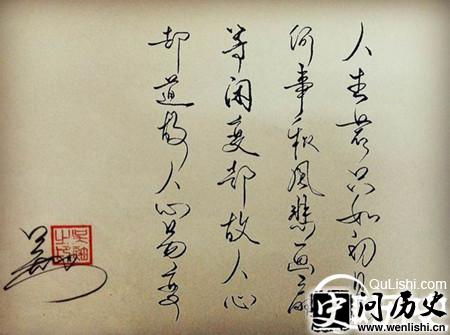 人生若只如初见
何事秋风悲画扇
等闲变却故人心
却道故人心易变
QuLishi.com
问历史
www.wenlishi.cn